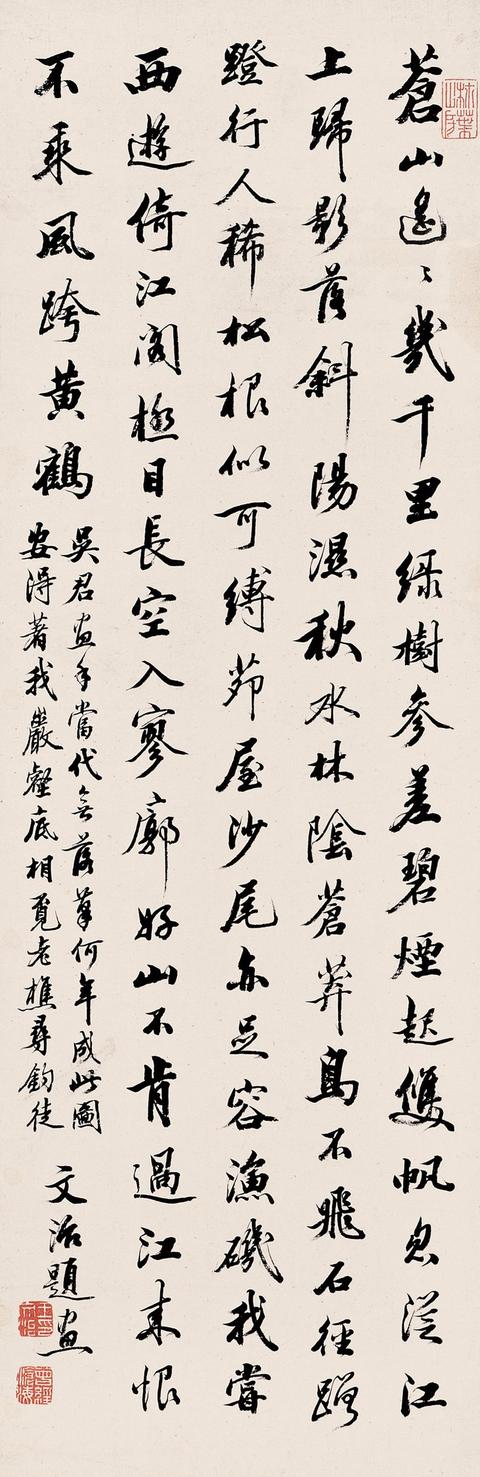 蒼山遙〻幾千里綠樹參差碧煙起雙帆忽從江
上歸影落斜陽濕秋水林陰蒼莽鳥不飛石徑蹭
蹬行人稀松根似可縛茆屋沙尾亦足容漁磯我嘗
西遊倚江閣極目長空入寥廓好山不肯過江來恨
不乘風跨黃鶴
吳君畫手當代無落筆何年成此圖
安得著我巖壑底相覓老樵尋釣徒
文治題畫
曾經滄海